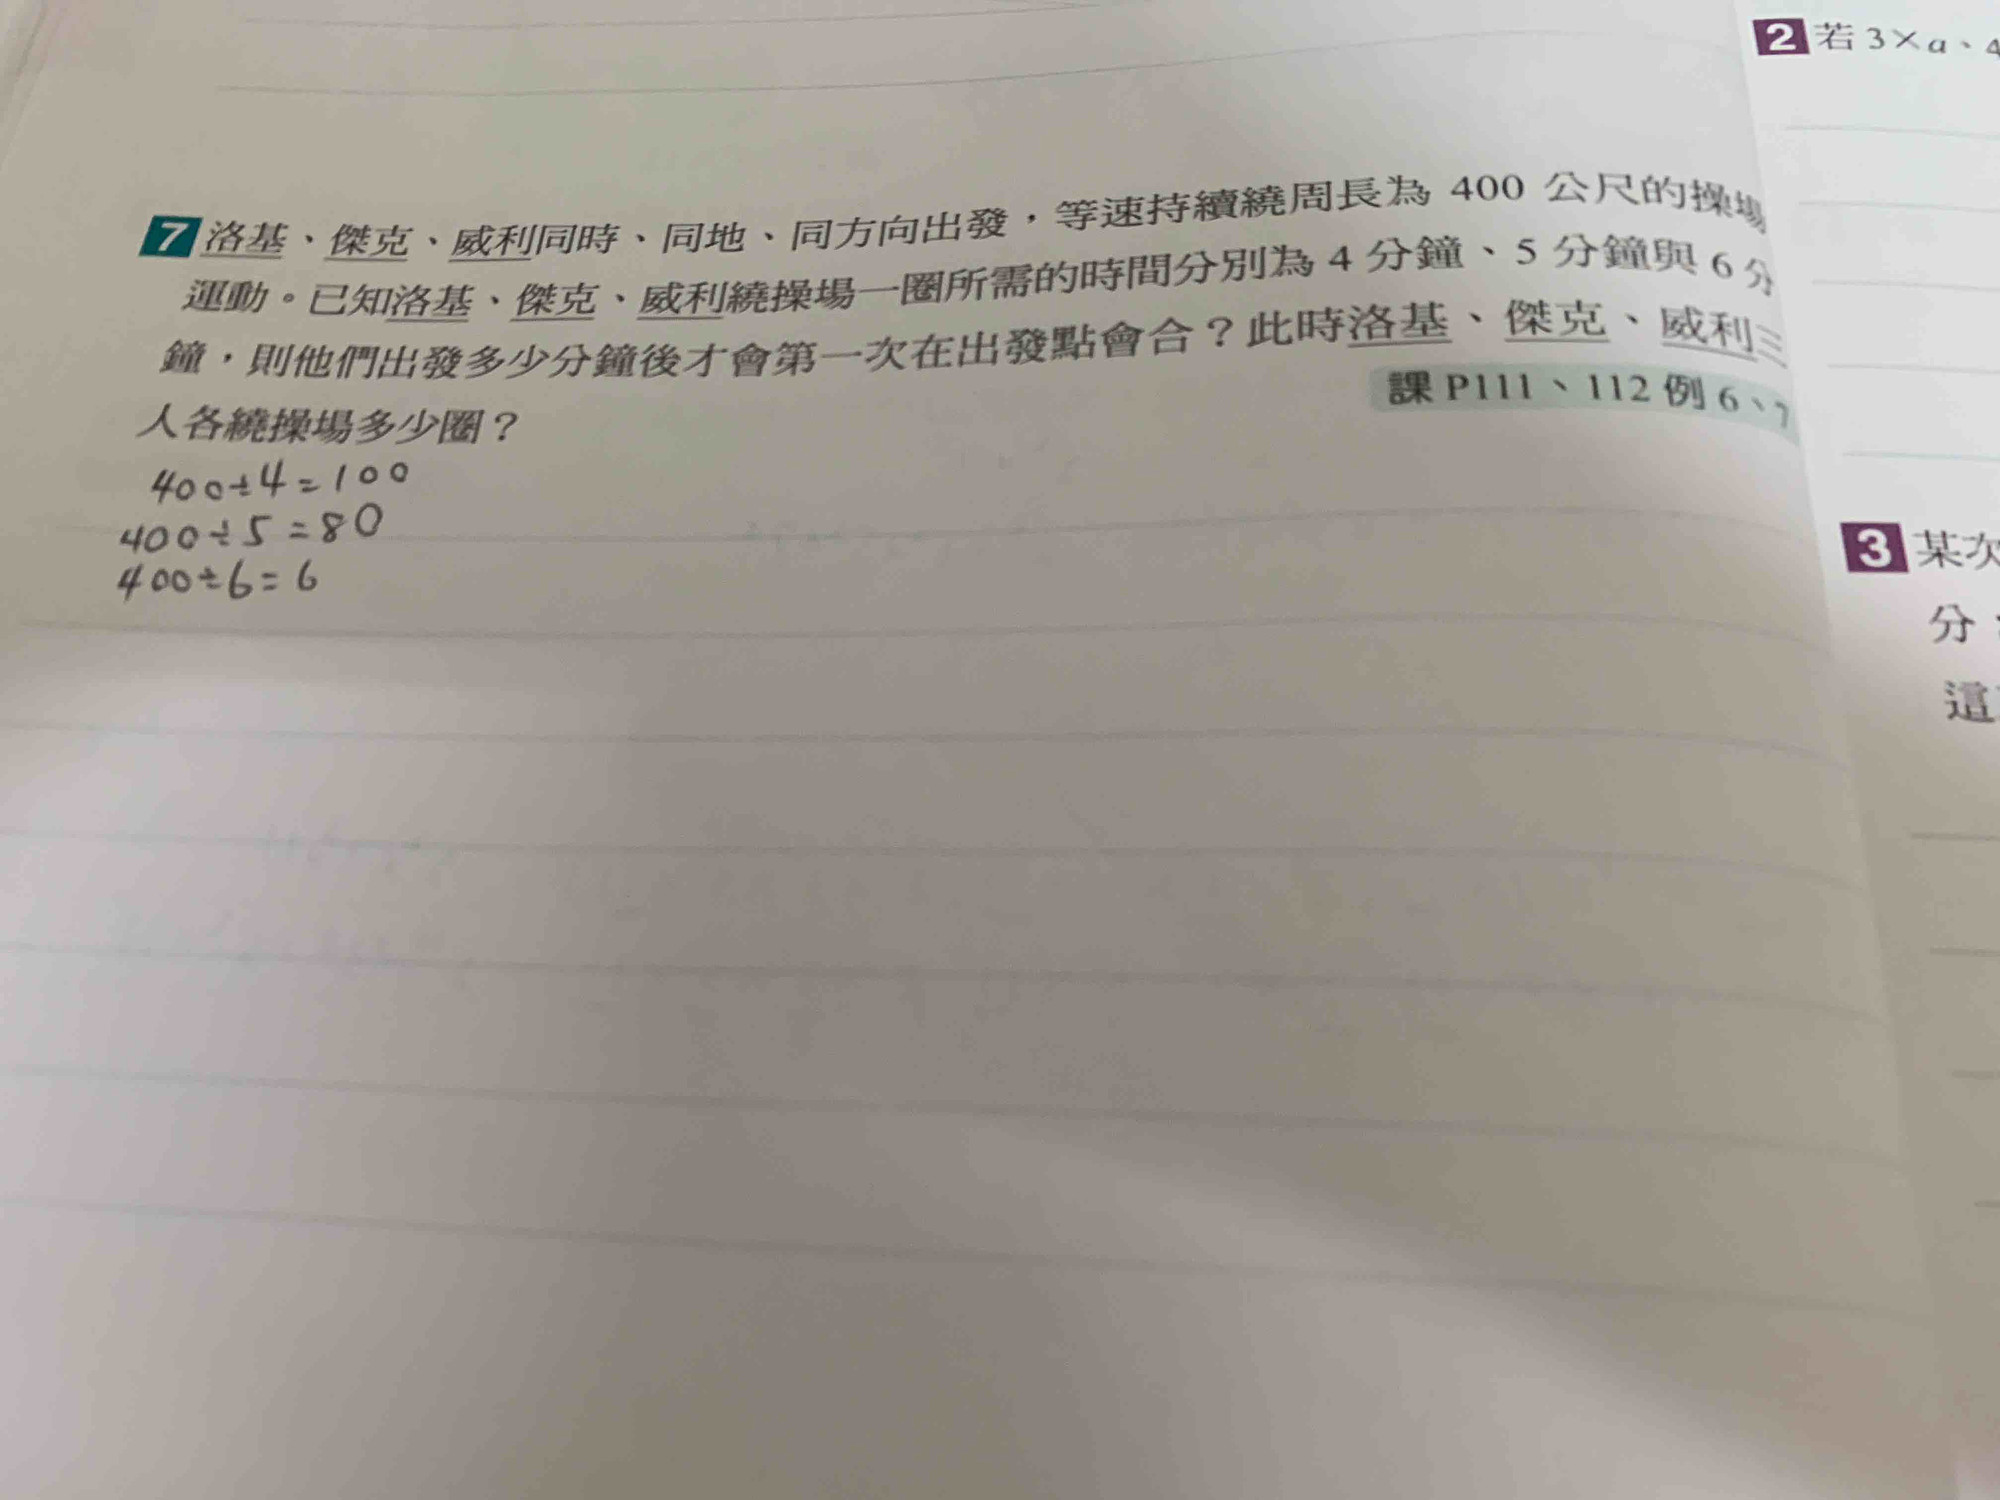 7 洛基、傑克、威利同時、同地、同方向出發，等速持續繞周長為 400 公尺的操場
運動。已知洛基、傑克、威利繞操場一圈所需的時間分別為 4 分鐘、5 分鐘與 6 分
鐘，則他們出發多少分鐘後才會第一次在出發點會合？此時洛基、傑克、威利三
人各繞操場多少圈？
課 P111、112 例 6、7
400÷4=100
400÷5=80
400÷6=6
2 若 3×a、4
3 某次
分
這